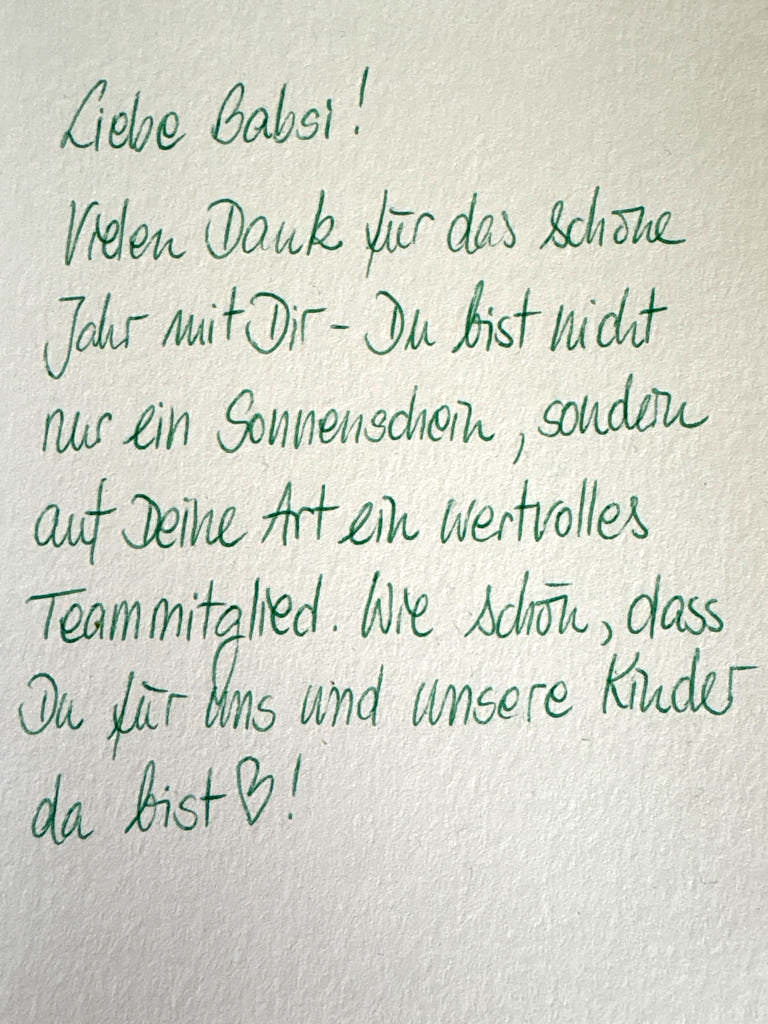 Liebe Babsi!
Vielen Dank für das schöne
Jahr mit Dir - Du bist nicht
nur ein Sonnenschein, sondern
auf Deine Art ein wertvolles
Teammitglied. Wie schön, dass
Du für uns und unsere Kinder
da bist ♡!